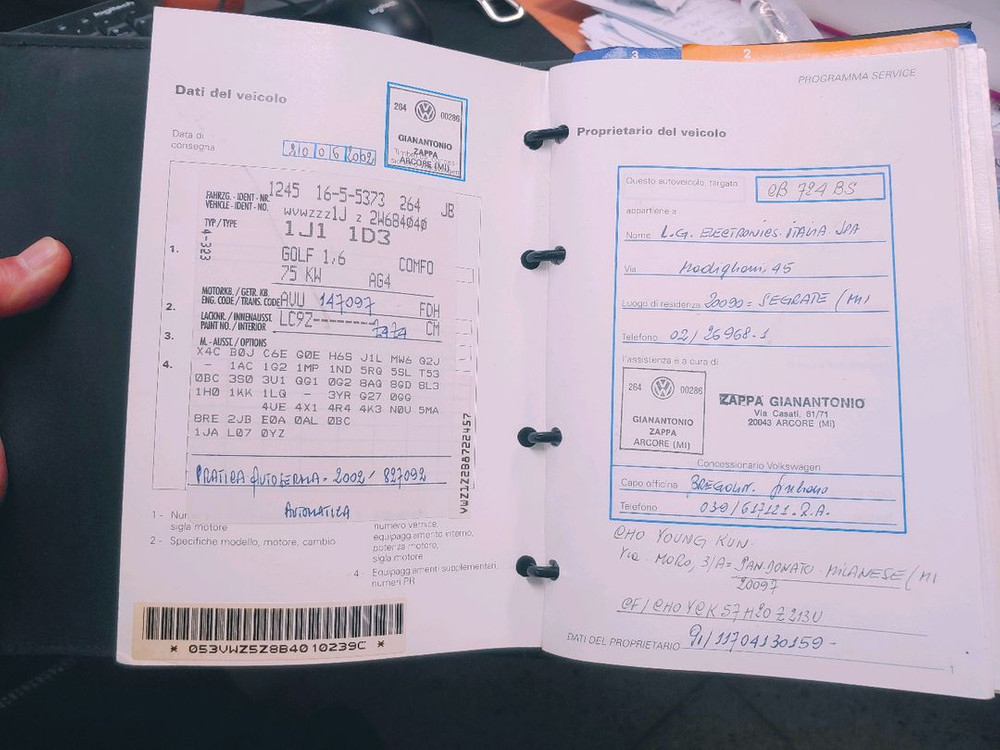 Dati del veicolo
Data di
consegna
20 06 2002
264 00286
GIANANTONIO
ZAPPA
ARCORE (MI)
FAHRZG.-IDENT-NR.
VEHICLE-IDENT-NO.
1245 16-5-5373 264 JB
WVWZZZ1J Z 2W684040
TYP/TYPE
1J1 1D3
4-323
1.
GOLF 1,6 COMFO
75 KW AG4
2.
MOTORKB./GETR. KB.
ENG. CODE/TRANS. CODE
AUU 147097 FDH
3.
LACKNR./INNENAUSST.
PAINT NO./INTERIOR
LC9Z-------- CM
M.-AUSST./OPTIONS
4.
X4C B0J C6E G0E H6S J1L MW6 Q2J
- 1AC 1G2 1MP 1ND 5RQ 5SL T53
0BC 3S0 3U1 GG1 0G2 8AQ 8GD 8L3
1H0 1KK 1LQ - 3YR Q27 0GG
4UE 4X1 4R4 4K3 N0U 5MA
BRE 2JB E0A 0AL 0BC
1JA L07 0YZ
VWZ1Z2B8722457
PRATICA AUTOGERMA-2002/827092
AUTOMATICA
1 - Num
sigla motore
2 - Specifiche modello, motore, cambio
numero vernice,
equipaggiamento interno,
potenza motore,
sigla motore
4 - Equipaggiamenti supplementari,
numeri PR
* 053VWZ5Z8B4010239C *
3
2
PROGRAMMA SERVICE
Proprietario del veicolo
Questo autoveicolo, targato CB 724 BS
appartiene a
Nome L.G. ELECTRONICS ITALIA SPA
Via Modigliani, 45
Luogo di residenza 20090 = SEGRATE (MI
Telefono 02/26968-1
l'assistenza è a cura di
264 00286
GIANANTONIO
ZAPPA
ARCORE (MI)
ZAPPA GIANANTONIO
Via Casati, 61/71
20043 ARCORE (MI)
Concessionario Volkswagen
Capo officina Giuliano
Telefono 039/617121.R.A.
CHO YOUNG KUN
Via MORO, 3/A= SAN DONATO MILANESE (MI
20097
CF/CHOYGK57H20Z213U
DATI DEL PROPRIETARIO 11704130159-
1